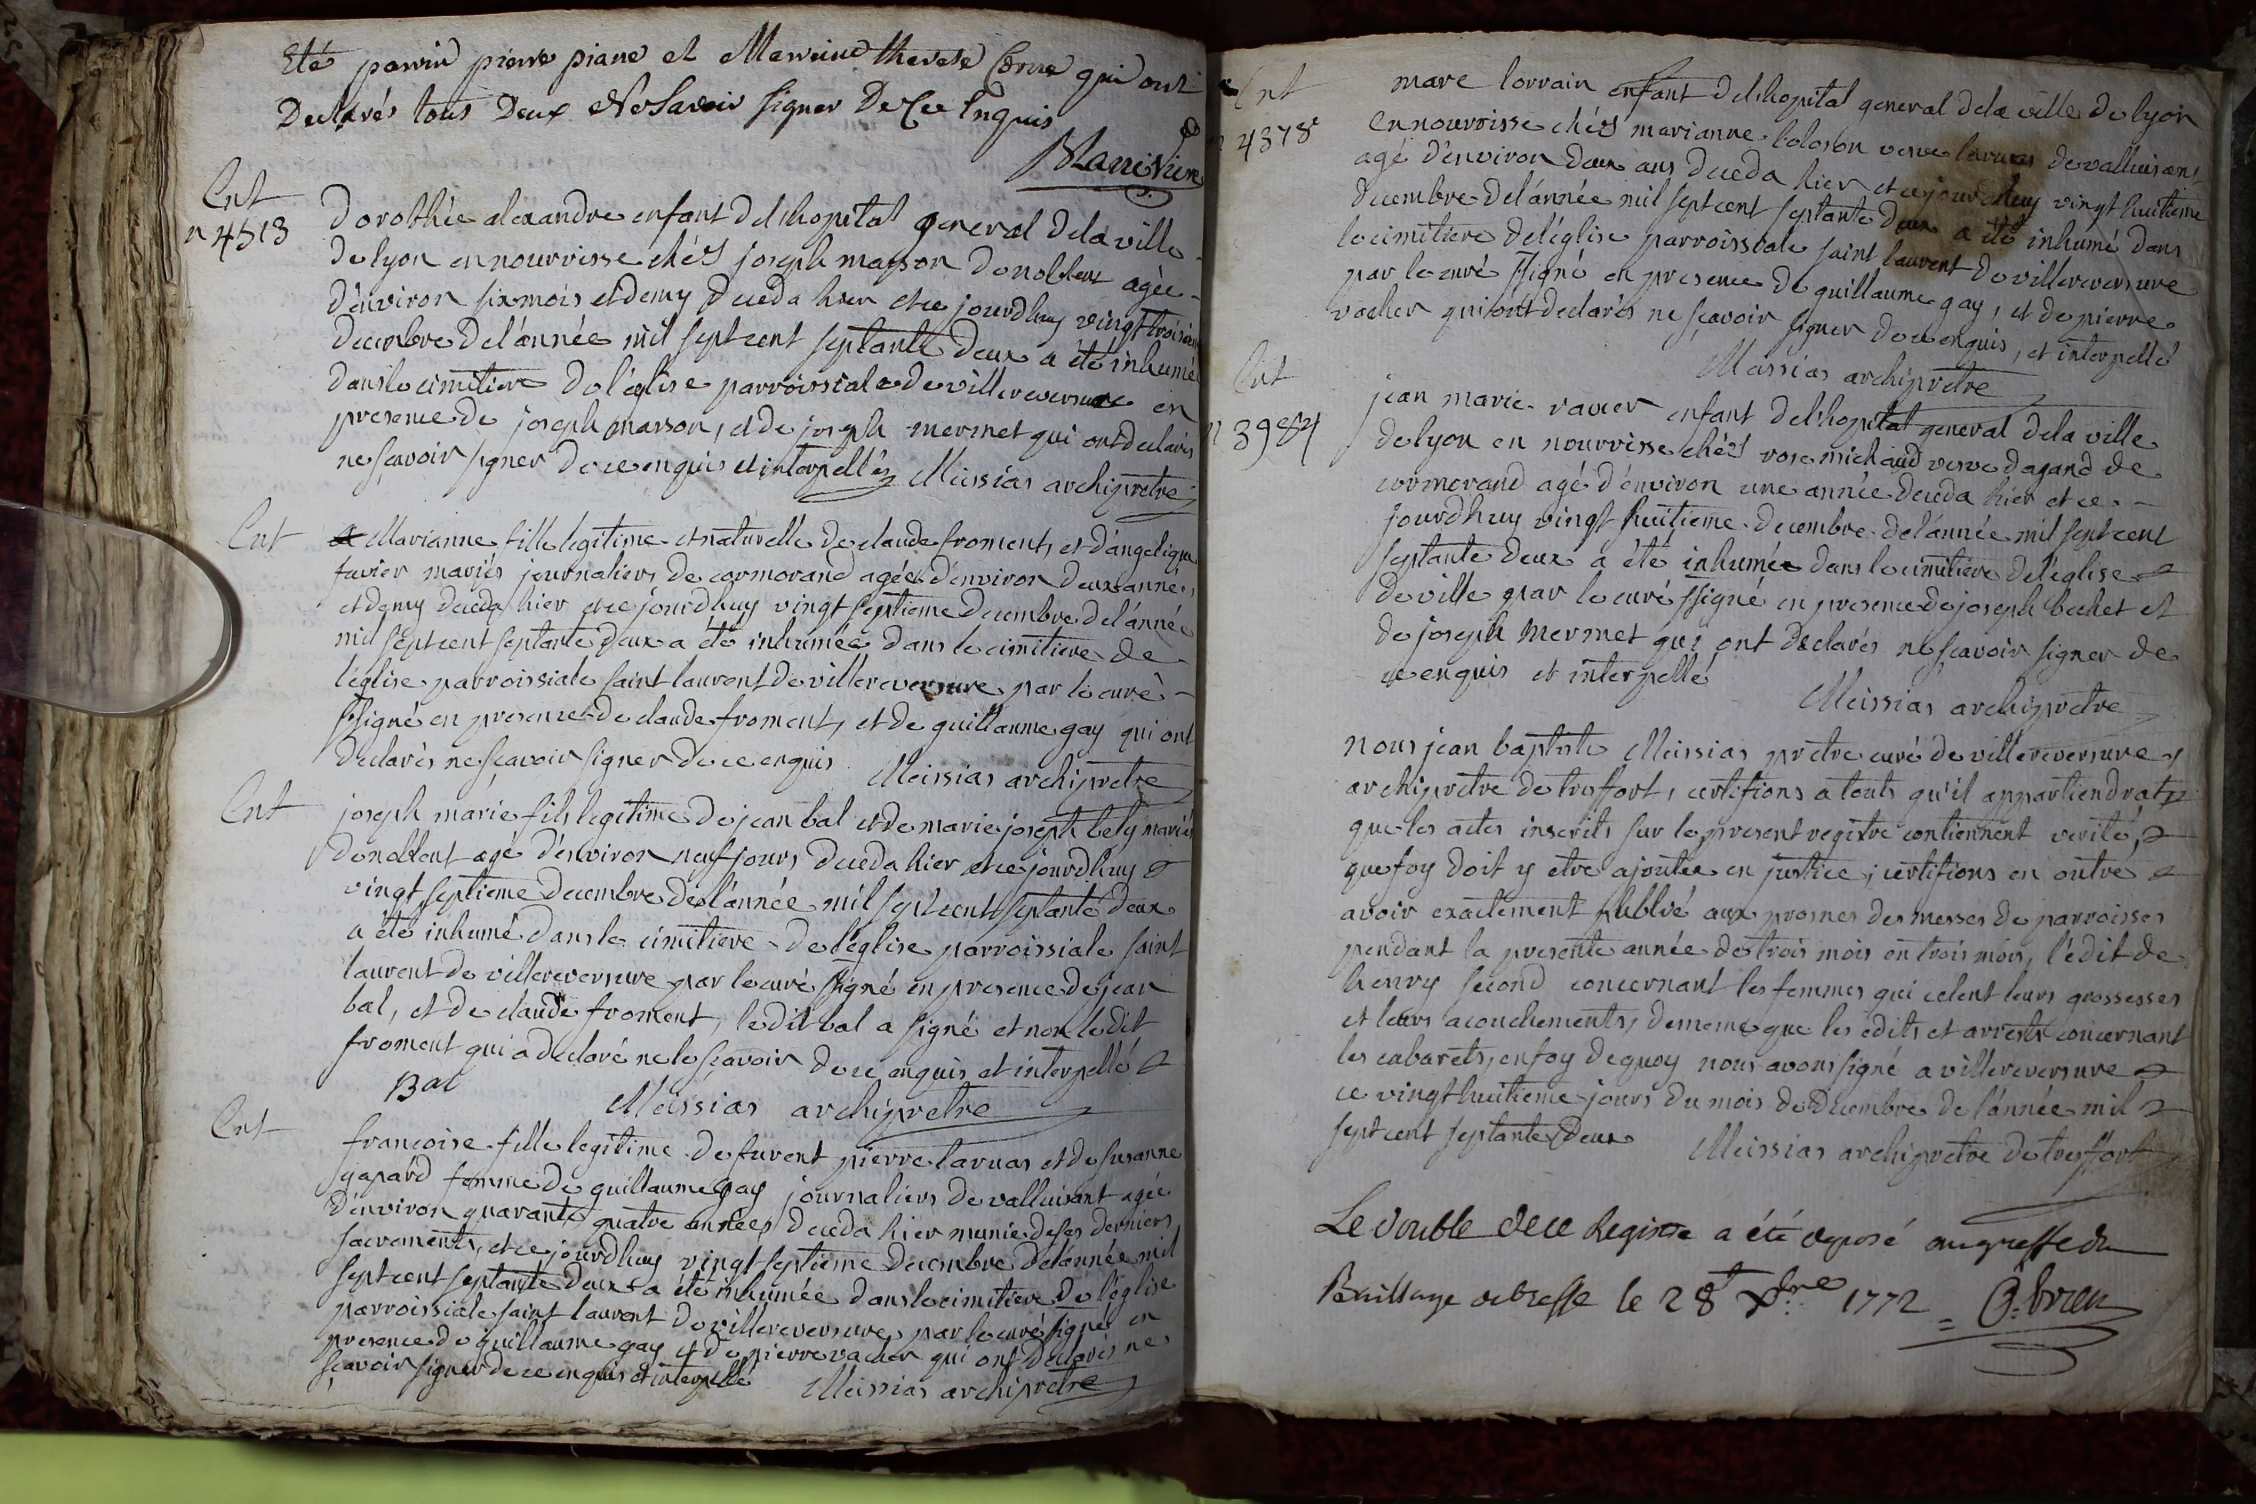 Eté parrin pierre piane et Marreine therese Corne qui ont
Declarés tous Deux Ne Savoir signer De Ce Enquis
Ent
n 4513
dorothée alexandre enfant del'hopital general dela ville
de lyon en nourrisse chés joseph masson de noblent agée
d'environ six mois et demy deceda hier et ce jourdhuy vingt troisième
decembre del'année mil sept cent septante deux a été inhumée
dans le cimitiere de l'église parroissiale de villereversure en
presence de joseph masson, et de joseph mermet qui ont declarés
ne sçavoir signer de ce enquis et interpellés Meissias archipretre
Ent
Marianne fille legitime et naturelle de claude froment, et d'angelique
favier mariés journaliers de cormorand agée d'environ deux années
et demy deceda hier et ce jourdhuy vingt septieme decembre del'année
mil sept cent septante deux a été inhumée dans le cimitiere de
l'église parroissiale saint laurent de villereversure par le curé
ssigné en presence de claude froment, et de guillaume gay qui ont
declarés ne sçavoir signer de ce enquis Meissias archipretre
Ent
joseph marie fils legitime de jean bal et de marie joseph bely mariés
de noblent agé d'environ neuf jours deceda hier et ce jourdhuy
vingt septieme decembre de l'année mil sept cent septante deux
a été inhumé dans le cimitiere de l'église parroissiale saint
laurent de villereversure par le curé ssigné en presence de jean
bal, et de claude froment, le dit bal a signé et non le dit
froment qui a declaré ne le sçavoir de ce enquis et interpellé
Bal Meissias archipretre
Ent
francoise fille legitime de furent pierre laruas et de susanne
gapard femme de guillaume gay journaliers de valluisant agée
d'environ quarante quatre années deceda hier munie de ses derniers
sacrements, et ce jourdhuy vingt septieme decembre del'année mil
sept cent septante deux a été inhumée dans le cimitiere de l'église
parroissiale saint laurent de villereversure par le curé ssigné en
presence de guillaume gay et de pierre vacher qui ont declarés ne
sçavoir signer de ce enquis et interpellé Meissias archipretre
Ent
n 4378
marc lorrain enfant del'hopital general dela ville de lyon
en nourrisse chés marianne boloson veuve laruas de valluisant
agé d'environ deux ans deceda hier et cejourdhuy vingt huitieme
decembre del'année mil sept cent septante deux a été inhumé dans
le cimitiere del'église parroissiale saint laurent de villereversure
par le curé ssigné en presence de guillaume gay, et de pierre
vacher qui ont declarés ne sçavoir signer de ce enquis, et interpellé
Meissias archipretre
Ent
n 3984
jean marie ravier enfant del'hopital general dela ville
de lyon en nourrisse chés rose michaud veuve dagand de
cormorand agé d'environ une année deceda hier et ce
jourdhuy vingt huitieme decembre del'année mil sept cent
septante deux a été inhumée dans le cimitiere del'eglise
de ville par le curé ssigné en presence de joseph bechet et
de joseph mermet qui ont declarés ne sçavoir signer de
ce enquis et interpellé
Meissias archipretre
Nous jean baptiste Meissias pretre curé de villereversure
archipretre de treffort, certifions a touts qu'il appartiendrat
que les actes inscrits sur le present registre contiennent verité,
que foy doit y etre ajoutée en justice, certifions en outre
avoir exactement publié aux prosnes des messes de parroisses
pendant la presente année de trois mois en trois mois, l'édit de
henry second concernant les femmes qui celent leurs grossesses
et leurs acouchements, de meme que les edits et arrests concernant
les cabarets, en foy de quoy nous avons signé a villereversure
ce vingt huitieme jours du mois de decembre de l'année mil
sept cent septante deux Meissias archipretre de treffort
Le double de ce Registre a été déposé au greffe du
Baillage de bresse le 28 Xbre 1772